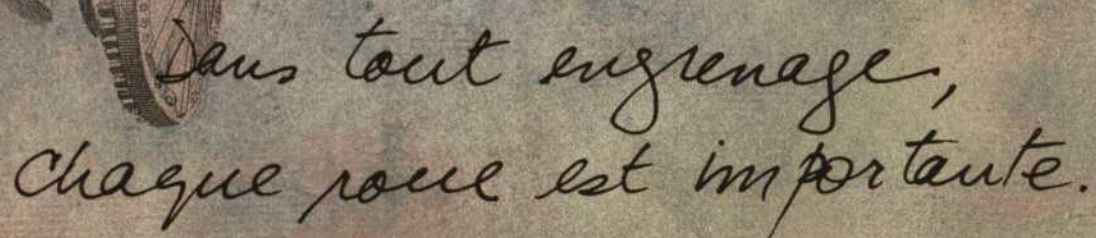 Dans tout engrenage,
chaque roue est importante.